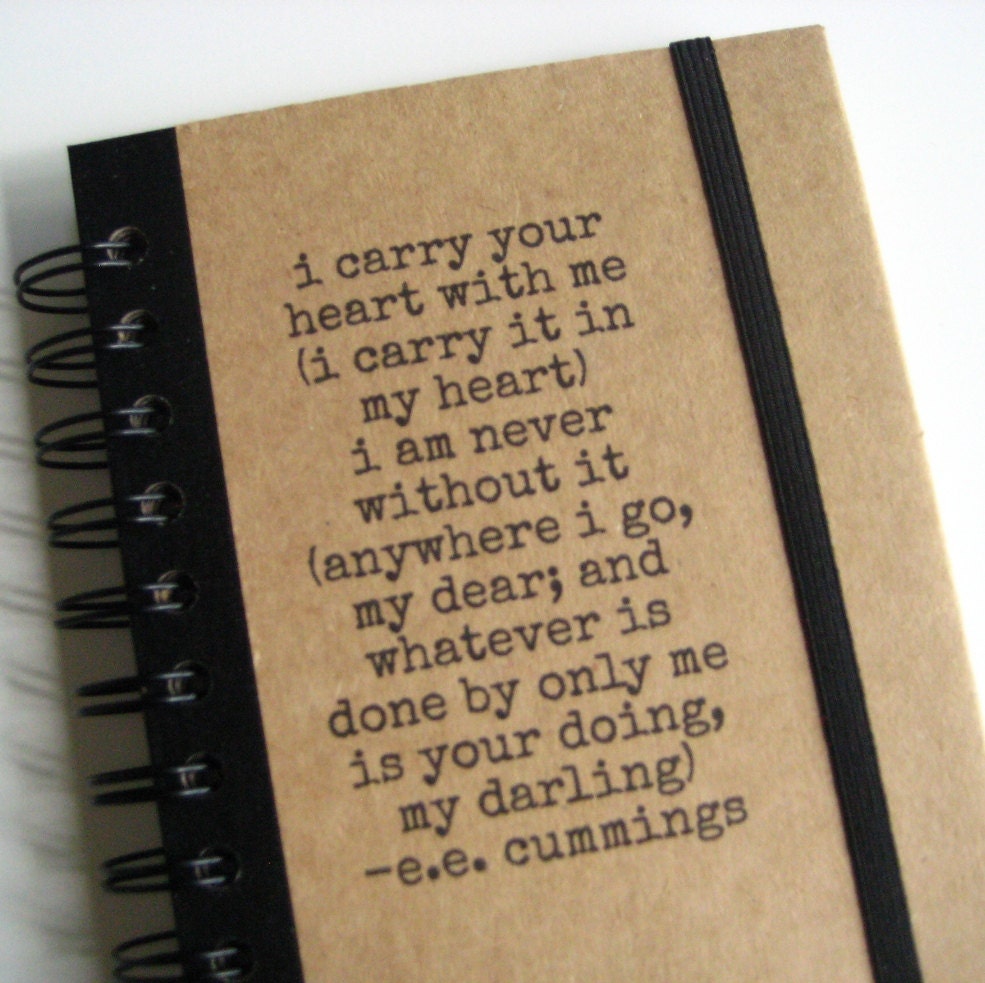 i carry your
heart with me
(i carry it in
my heart)
i am never
without it
(anywhere i go,
my dear; and
whatever is
done by only me
is your doing,
my darling)
-e.e. cummings